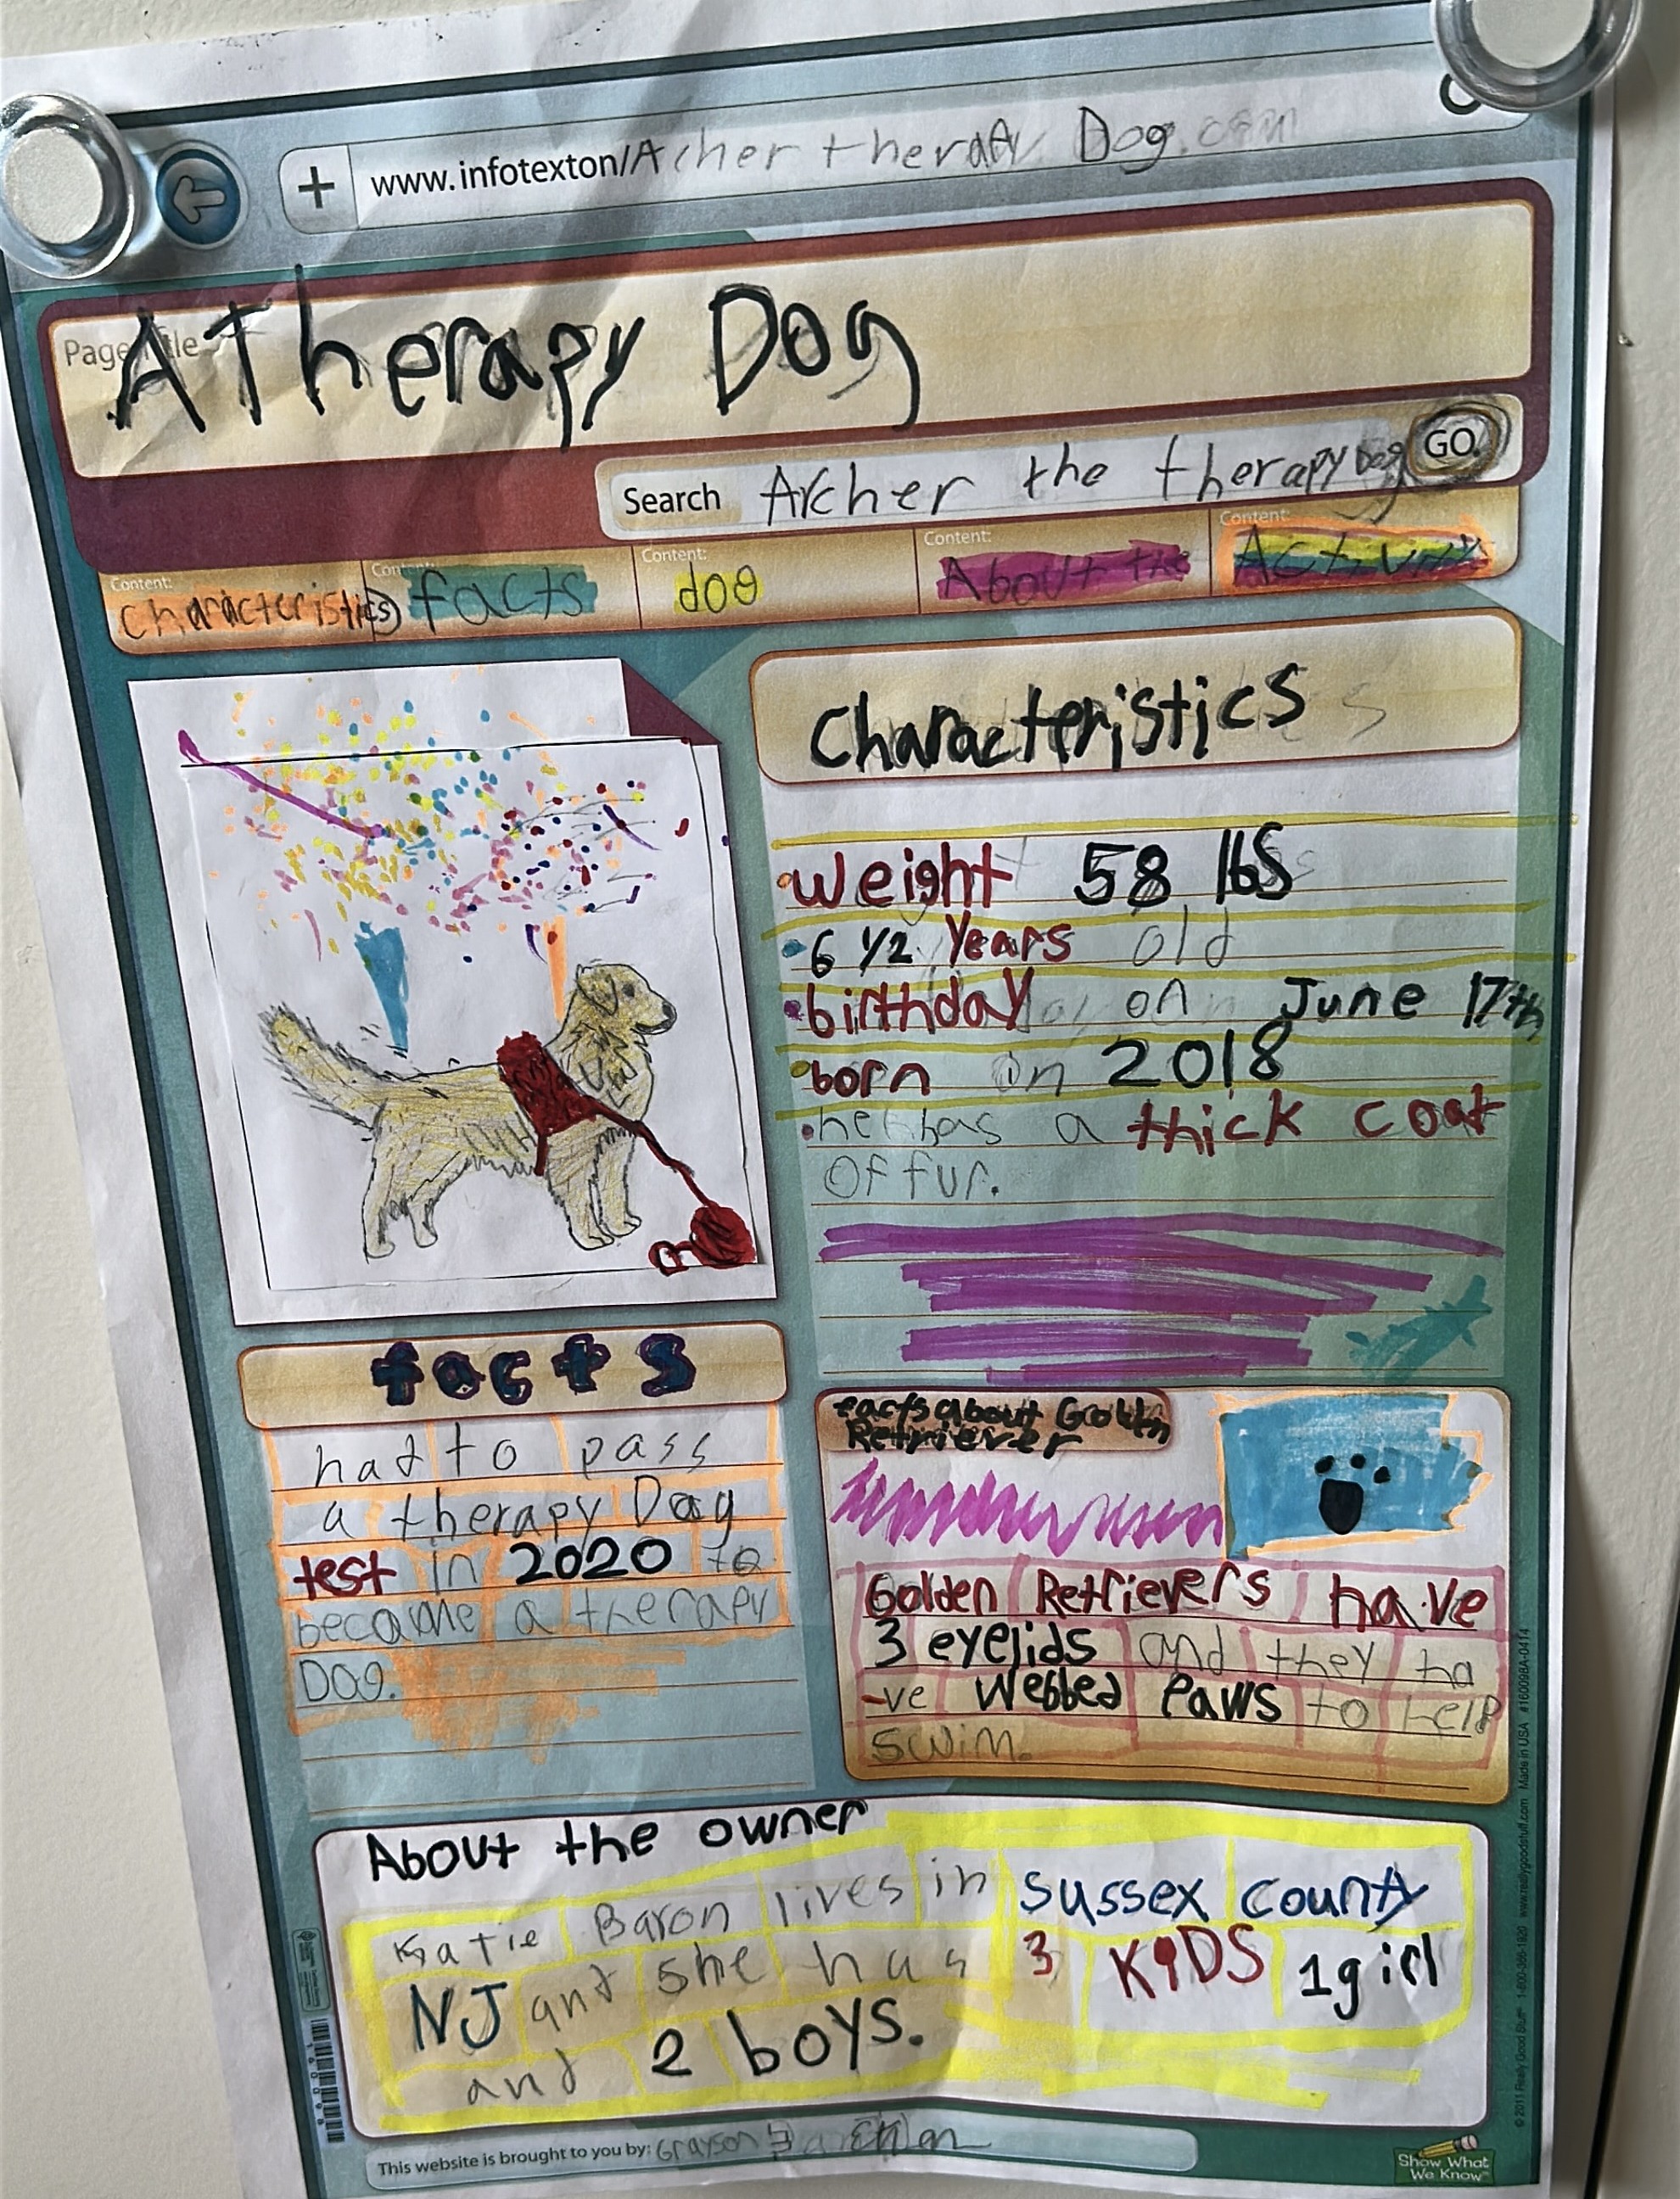 www.infotexton/Acher therapy Dog.com
Page Title
A Therapy Dog
Search Archer the therapy Dog GO
Content: characteristics
Content: facts
Content: dog
Content: About the
Content: Activity
characteristics
weight 58 lbs
6 1/2 years old
birthday on June 17th
born in 2018
he has a thick coat
of fur.
facts
had to pass
a therapy Dog
test in 2020 to
become a therapy
Dog.
facts about Golden
Retriever
Golden Retrievers have
3 eyelids and they ha
-ve webbed paws to help
swim.
About the owner
Katie Baron lives in Sussex county
NJ and she has 3 KIDS 1 girl
and 2 boys.
This website is brought to you by: Grayson
Show What
We Know™
© 2011 Really Good Stuff® 1-800-366-1920 www.reallygoodstuff.com Made in USA #160098A-0414